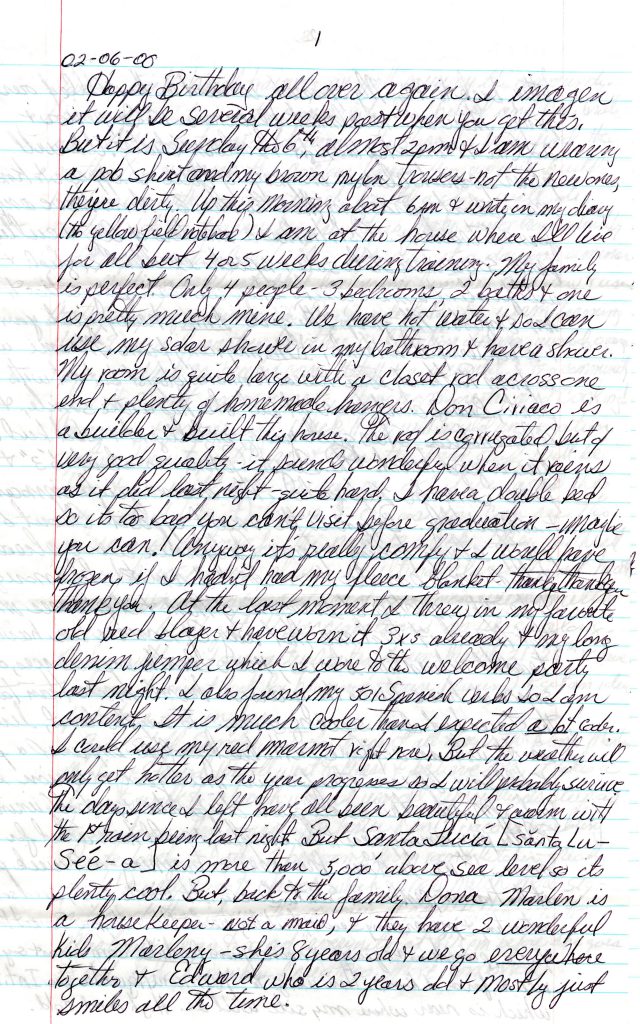 1
02-06-00
Happy Birthday all over again. I imagen
it will be several weeks past when you get this.
But it is Sunday the 6th, almost 2pm & I am wearing
a pob shirt and my brown nylon trousers - not the new ones,
they're dirty. Up this morning about 6 am & write in my diary
(the yellow field notebook) I am at the house where I'll live
for all but 4 or 5 weeks during training. My family
is perfect. Only 4 people - 3 bedrooms, 2 baths & one
is pretty much mine. We have hot water & so I can
use my solar shower in my bathroom & have a shower.
My room is quite large with a closet rod across one
end & plenty of homemade hangers. Don Ciriaco is
a builder & built this house. The roof is corrugated, but of
very good quality - it sounds wonderful when it rains
as it did last night - quite hard. I have a double bed
so its too bad you can't visit before graduation - maybe
you can! Anyway it's really comfy & I would have
frozen if I hadn't had my fleece blanket - thank you thank you
thank you. At the last moment I threw in my favorite
old red blazer & have worn it 3 xs already & my long
denim jumper which I wore to the welcome party
last night. I also found my 501 Spanish verbs so I am
content. It is much cooler than I expected a lot cooler.
I could use my red marmot right now. But the weather will
only get hotter as the year progresses so I will probably survive.
The days since I left have all been beautiful & warm with
the 1st rain being last night. But Santa Lucia [Sănta Lu-
See-a] is more than 3,000' above sea level so its
plenty cool. But, back to the family. Dona Marlen is
a housekeeper - not a maid, & they have 2 wonderful
kids Marleny - she's 8 years old & we go everywhere
together & Edward who is 2 years old & mostly just
smiles all the time.